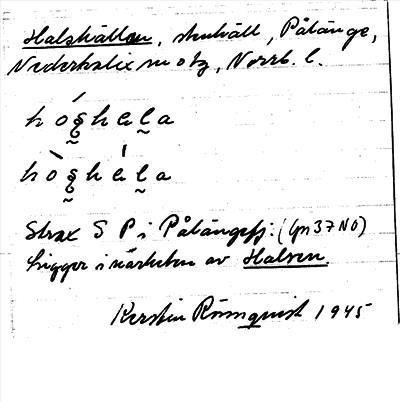 Halshällan, stenhäll, Pålänge,
Nederkalix sn o tg, Norrb. l.
Strax S P i Pålängefj. (Gp 37 NO)
Ligger i närheten av Halsen.
Kerstin Rönnquist 1945